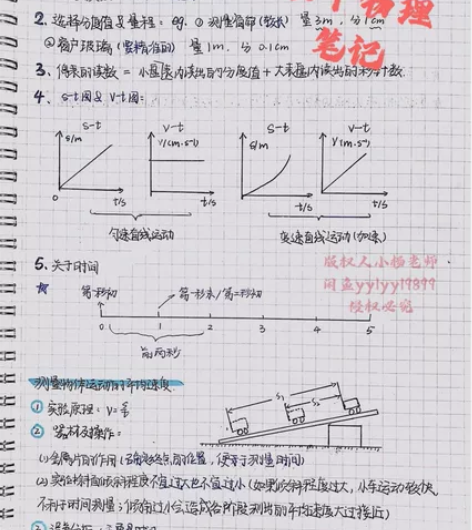 物理
笔记
2、选择分度值及量程：eg. ① 测量窗帘(较长) 量3m，分1cm
②窗户玻璃(要精准的) 量1m，分0.1cm
3、停表的读数 = 小表盘内读出的分度值 + 大表盘内读出的秒个数.
4、s-t图及v-t图：
s-t v-t s-t v-t
s/m v/(m·s⁻¹) s/m v/(m·s⁻¹)
0 t/s t/s t/s t/s
匀速直线运动 变速直线运动(加速)
版权人小杨老师
闲鱼yylyy19899
侵权必究
5、关于时间
第一秒初 第一秒末/第二秒初
0 1 2 3 4 5
前两秒
测量物体运动的平均速度
① 实验原理：v=s/t
S₁
S₂
② 器材及操作：
(1)金属片的作用(确定终点的位置，便于测量时间)
(2)实验斜面倾斜程度不宜过大也不宜过小(如果倾斜程度过大，小车运动较快
不利于时间测量；倾角过小会造成各阶段测出的平均速度大过接近)